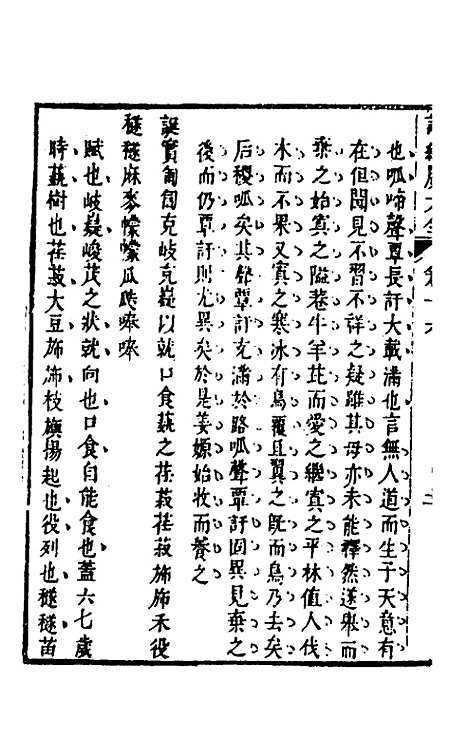 也呱啼聲覃長訏大載滿也言無人道而生子天意有
在但聞見不習不祥之疑雖其母亦未能釋然遂舉而
棄之始寘之隘巷牛羊芘而愛之繼寘之平林值人伐
木而不果又寘之寒冰有鳥覆且翼之旣而鳥乃去矣
后稷呱矣其聲覃訏充滿於路呱聲覃訏固異見棄之
後而仍覃訏則尤異矣於是姜嫄始收而養之
誕實匍匐克岐克嶷以就口食蓺之荏菽荏菽斾斾禾役
穟穟麻麥幪幪瓜瓞唪唪
賦也岐嶷峻茂之狀就向也口食自能食也蓋六七歲
時蓺樹也荏菽大豆斾斾枝旟揚起也役列也穟穟苗